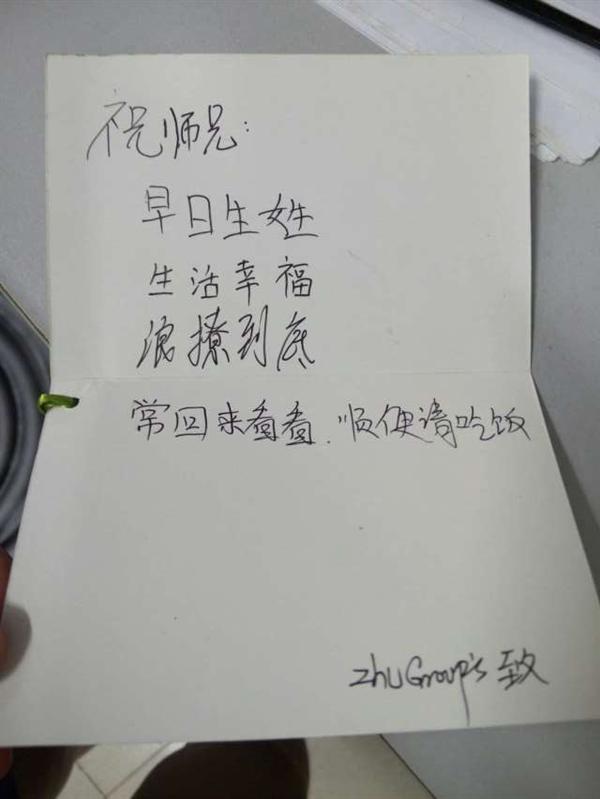 祝师兄:
早日生姓
生活幸福
浪撩到底
常回来看看.顺便请吃饭
Zhu Group's 致